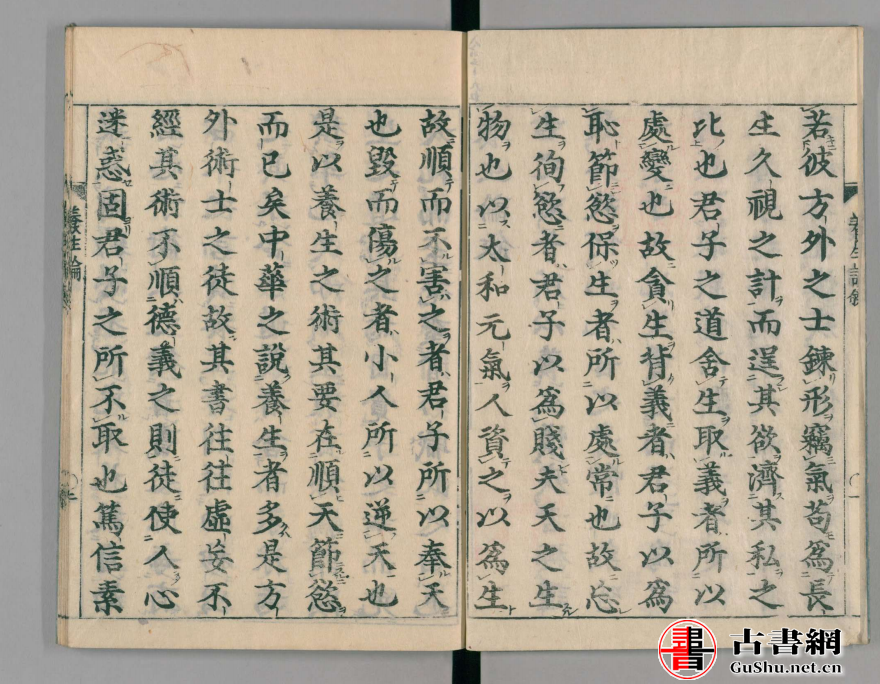 若彼方外之士鍊形竊氣苟爲長
生久視之計而逞其欲濟其私之
比也君子之道舍生取義者所以
處變也故貪生背義者君子以爲
恥節慾保生者所以處常也故忘
生徇慾者君子以爲賤夫天之生
物也以太和元氣人資之以爲生
故順而不害之者君子所以奉天
也毀而傷之者小人所以逆天也
是以養生之術其要在順天節慾
而已矣中華之說養生者多是方
外術士之徒故其書往往虛妄不
經其術不順德義之則徒使人心
迷惑固君子之所不取也篤信素
養生論
古書網
GuShu.net.cn